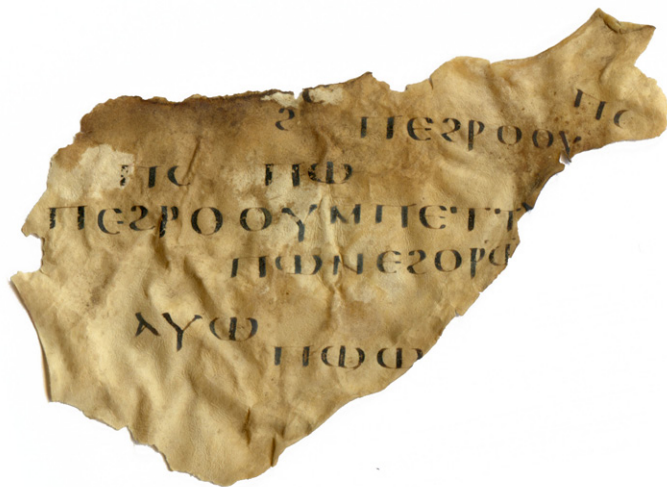 ⲡⲥ
ϩ ⲡⲉϩⲣⲟⲟⲩ
ⲡⲥ ⲡⲱ
ⲡⲉϩⲣⲟⲟⲩⲙⲡⲉⲧ
ⲡⲱⲛⲉϩⲟⲣ
ⲁⲩⲱ
ⲡⲱⲱ